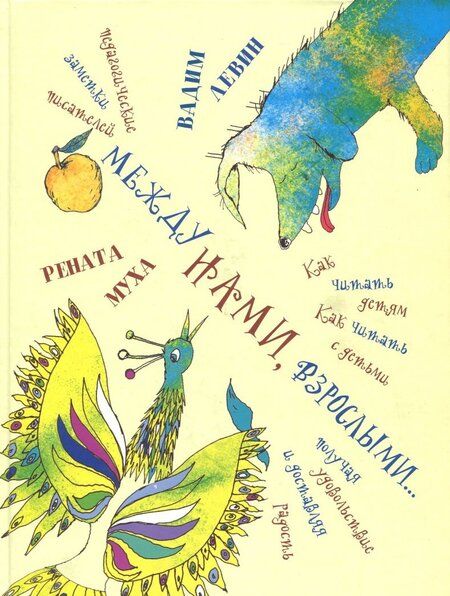 педагогические
заметки
писателей
ВАДИМ
ЛЕВИН
МЕЖДУ
НАМИ,
ВЗРОСЛЫМИ...
РЕНАТА
МУХА
Как
читать
детям
Как читать
с детьми
получая
удовольствие
и доставляя
радость